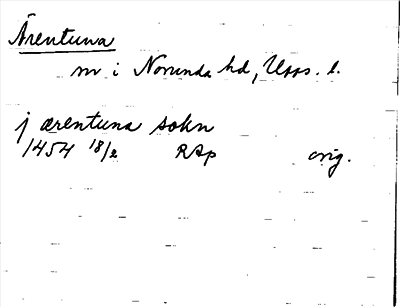 Ärentuna
m i Norunda hd, Upps. l.
j ærentuna sokn
1454 18/2 RAp orig.